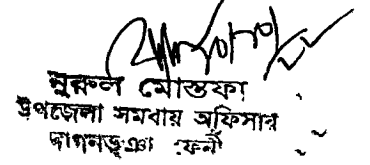 নুরুল মোস্তফা
উপজেলা সমবায় অফিসার
দাগনভূঞা ফেনী